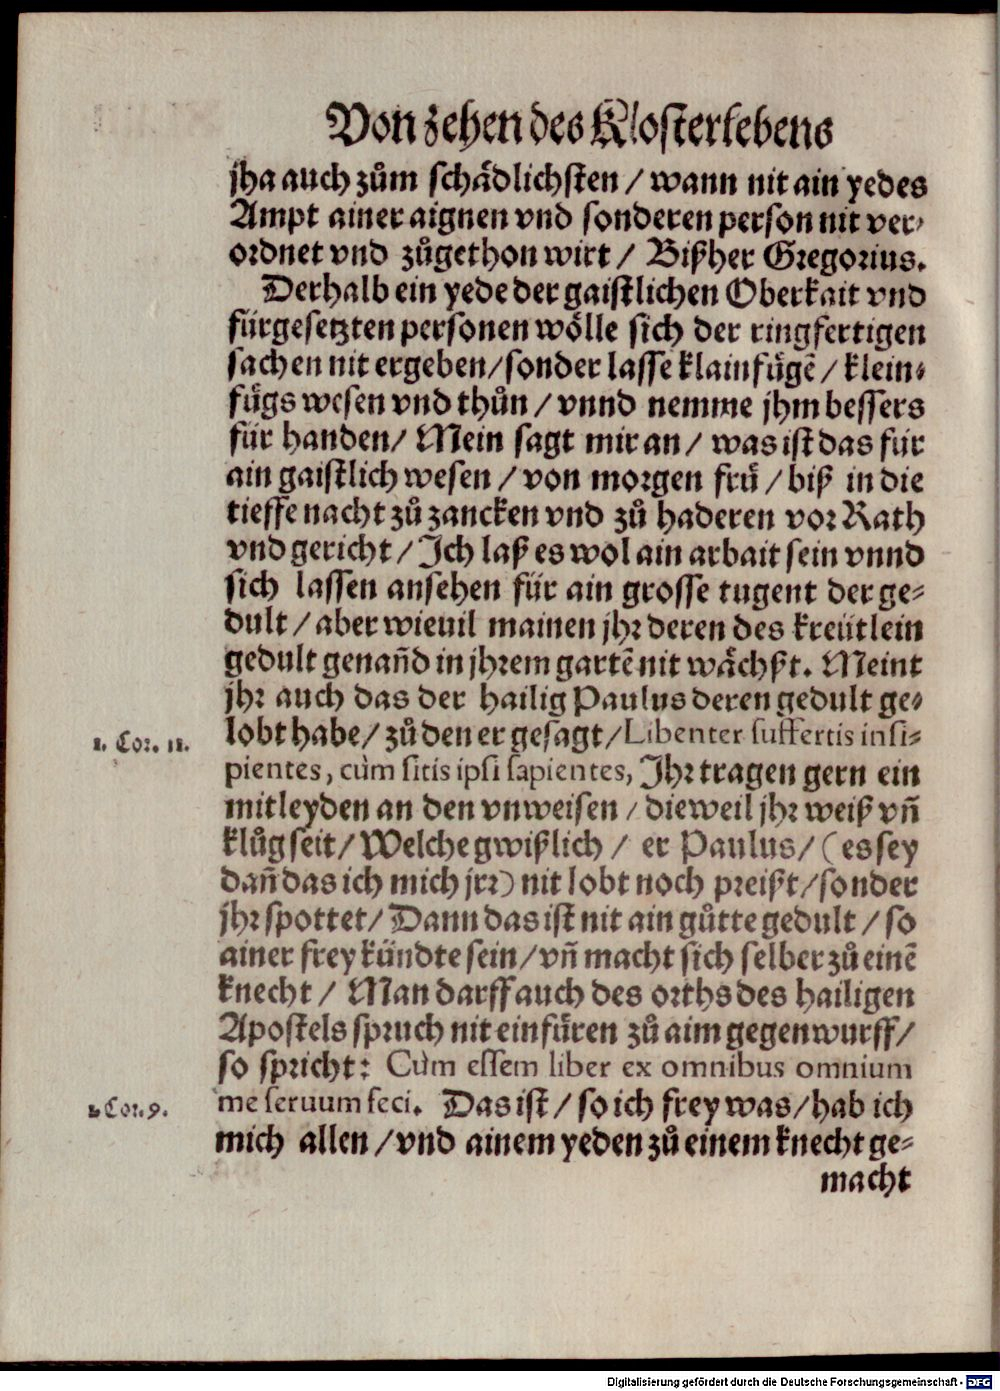 Von zehen des Klosterlebens
jha auch zům schädlichsten / wann nit ain yedes
Ampt ainer aignen vnd sonderen person nit ver-
ordnet vnd zůgethon wirt / Bißher Gregorius.
Derhalb ein yede der gaistlichen Oberkait vnd
fürgesetzten personen wölle sich der ringfertigen
sachen nit ergeben / sonder lasse klainfügẽ / klein-
fügs wesen vnd thůn / vnnd nemme jhm bessers
für handen / Mein sagt mir an / was ist das für
ain gaistlich wesen / von morgen frü / biß in die
tieffe nacht zů zancken vnd zů haderen vor Rath
vnd gericht / Ich laß es wol ain arbait sein vnnd
sich lassen ansehen für ain grosse tugent der ge-
dult / aber wieuil mainen jhr deren des kreütlein
gedult genañd in jhrem gartẽ nit wächßt. Meint
jhr auch das der hailig Paulus deren gedult ge-
1. Cor. 11.
lobt habe / zů den er gesagt / Libenter suffertis insi-
pientes, cùm sitis ipsi sapientes, Jhr tragen gern ein
mitleyden an den vnweisen / dieweil jhr weiß vñ
klůg seit / Welche gwißlich / er Paulus / (es sey
dañ das ich mich jrr) nit lobt noch preißt / sonder
jhr spottet / Dann das ist nit ain gůtte gedult / so
ainer frey kündte sein / vñ macht sich selber zů einẽ
knecht / Man darff auch des orths des hailigen
Apostels spruch nit einfüren zů aim gegenwurff /
so spricht: Cùm essem liber ex omnibus omnium
1. Cor. 9.
me seruum feci. Das ist / so ich frey was / hab ich
mich allen / vnd ainem yeden zů einem knecht ge-
macht
Digitalisierung gefördert durch die Deutsche Forschungsgemeinschaft - DFG